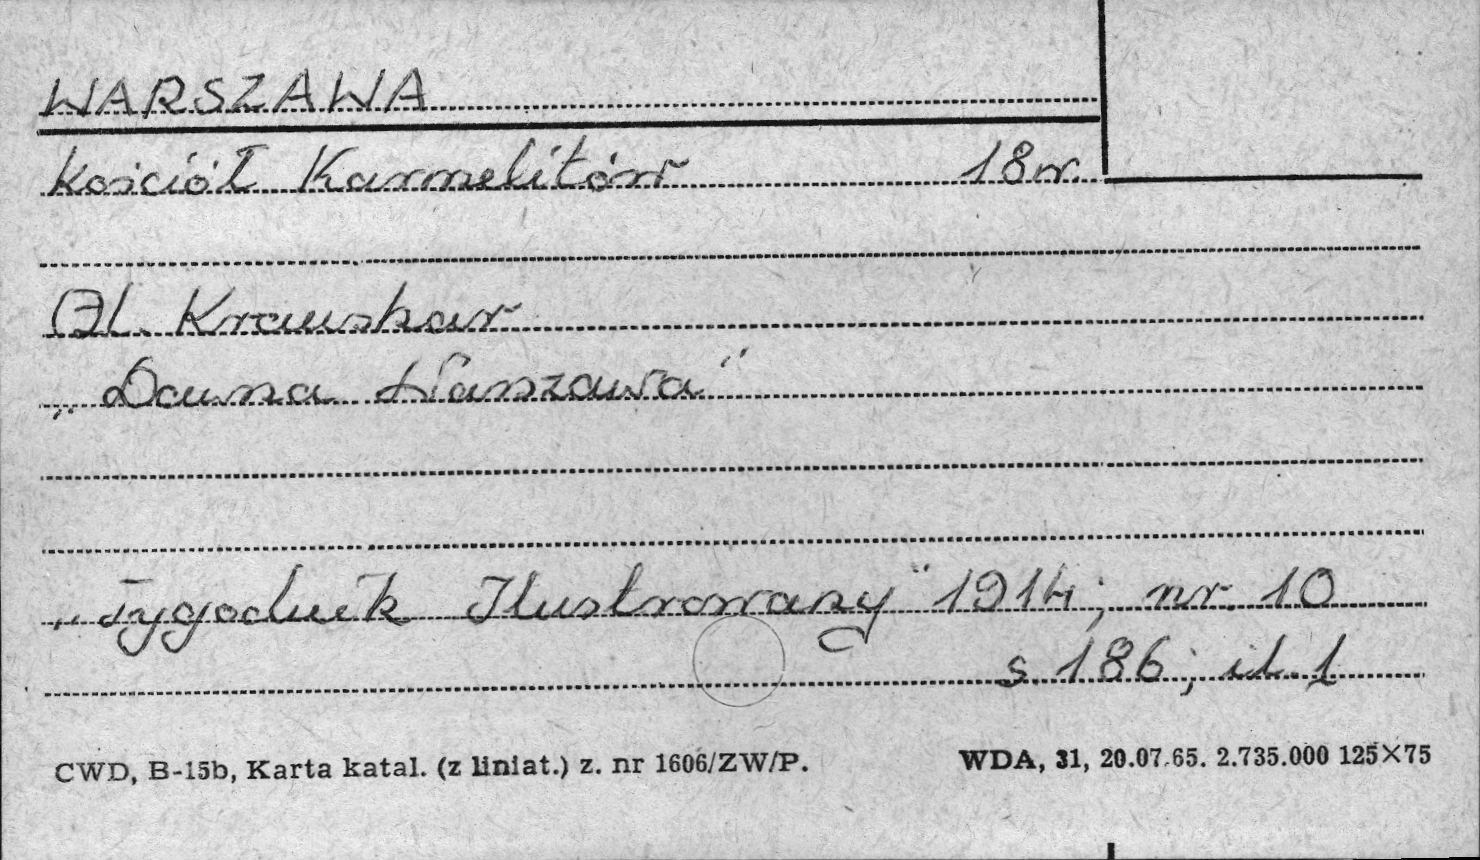 WARSZAWA
Kościół Karmelitów 18 w.
Al. Kraushar
„Dawna Warszawa"
„Tygodnik Ilustrowany" 1914; nr. 10
s. 186; il. 1
CWD, B-15b, Karta katal. (z liniat.) z. nr 1606/ZW/P. WDA, 31, 20.07.65. 2.735.000 125×75